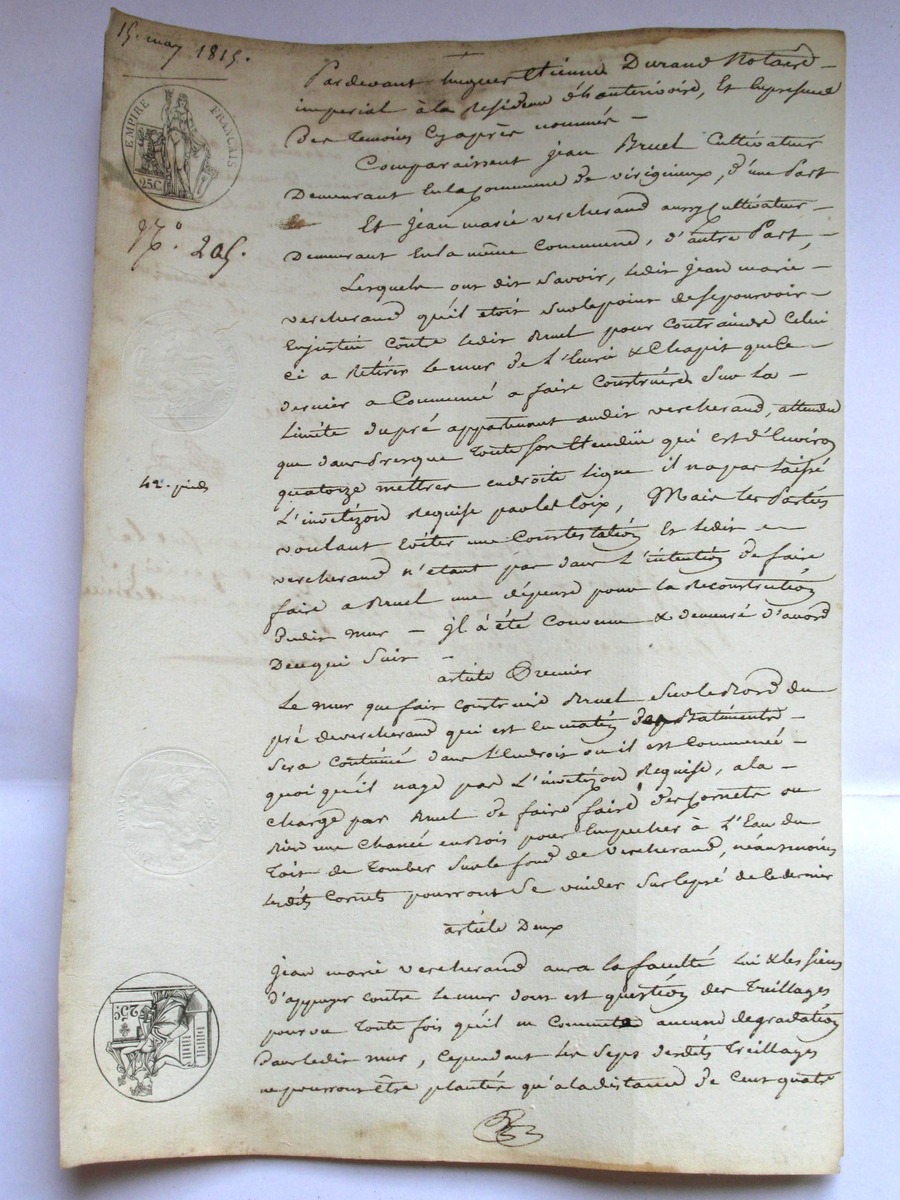 15. may 1815.
EMPIRE FRANÇAIS
25C
N.° 205.
Pardevant hugues Etienne Durand Notaire
imperial à la residence et En presence
Des temoins Cyaprès nommés —
Comparaissent jean Bruel Cultivateur
Demeurant En la Commune de virigineux, d'une Part
Et jean marie vercherand aussy Cultivateur —
Demeurant En la même Commune, d'autre Part, —
Lesquels ont dit Savoir, ledit jean marie —
vercherand qu'il étoit Sur le point de Se pourvoir —
En justice Contre ledit Bruel pour Contraindre Celui
ci a Retirer le mur de & Chapit que Ce —
dernier a Commencé a faire Construire Sur La —
Limite du pré appartenant audit vercherand, attendu
que dans Presque toute Son Etendüe qui est d'Environ
quatorze mettres en droite ligne il n'a pas laissé
42. pieds
L'invétizon Requise par les loix, Mais les Parties
voulant Eviter une Contestation Et ledit —
vercherand n'étant pas dans l'intention de faire
faire a Bruel une dépense pour la Reconstruction
Dudit mur — il a été Convenu & demeuré d'acord
De ce qui Suit —
article Premier
Le mur que fait Construire Bruel Sur le Bord du
pré de vercherand qui est Batiments —
Sera Continué dans l'Endroit où il est Commencé —
quoi qu'il n'aye pas L'invétizon Requise, a la —
Charge par Bruel de faire faire des Cornets ou
Bien une Chanée en Bois pour Empecher à L'Eau du
Toit de Tomber Sur le fond de Vercherand, néanmoins
lesdits Cornets pourront Se vuider Sur le pré de ce dernier
article Deux
Jean marie vercherand aura la faculté lui & les Siens
d'appuyer contre le mur dont est question des Treillages
pourvu Toute fois qu'il ne Commette aucune degradation
Dans ledit mur, Cependant les Seps desdits Treillages
ne pourront être plantés qu'a la distance de Cent quatre
25C